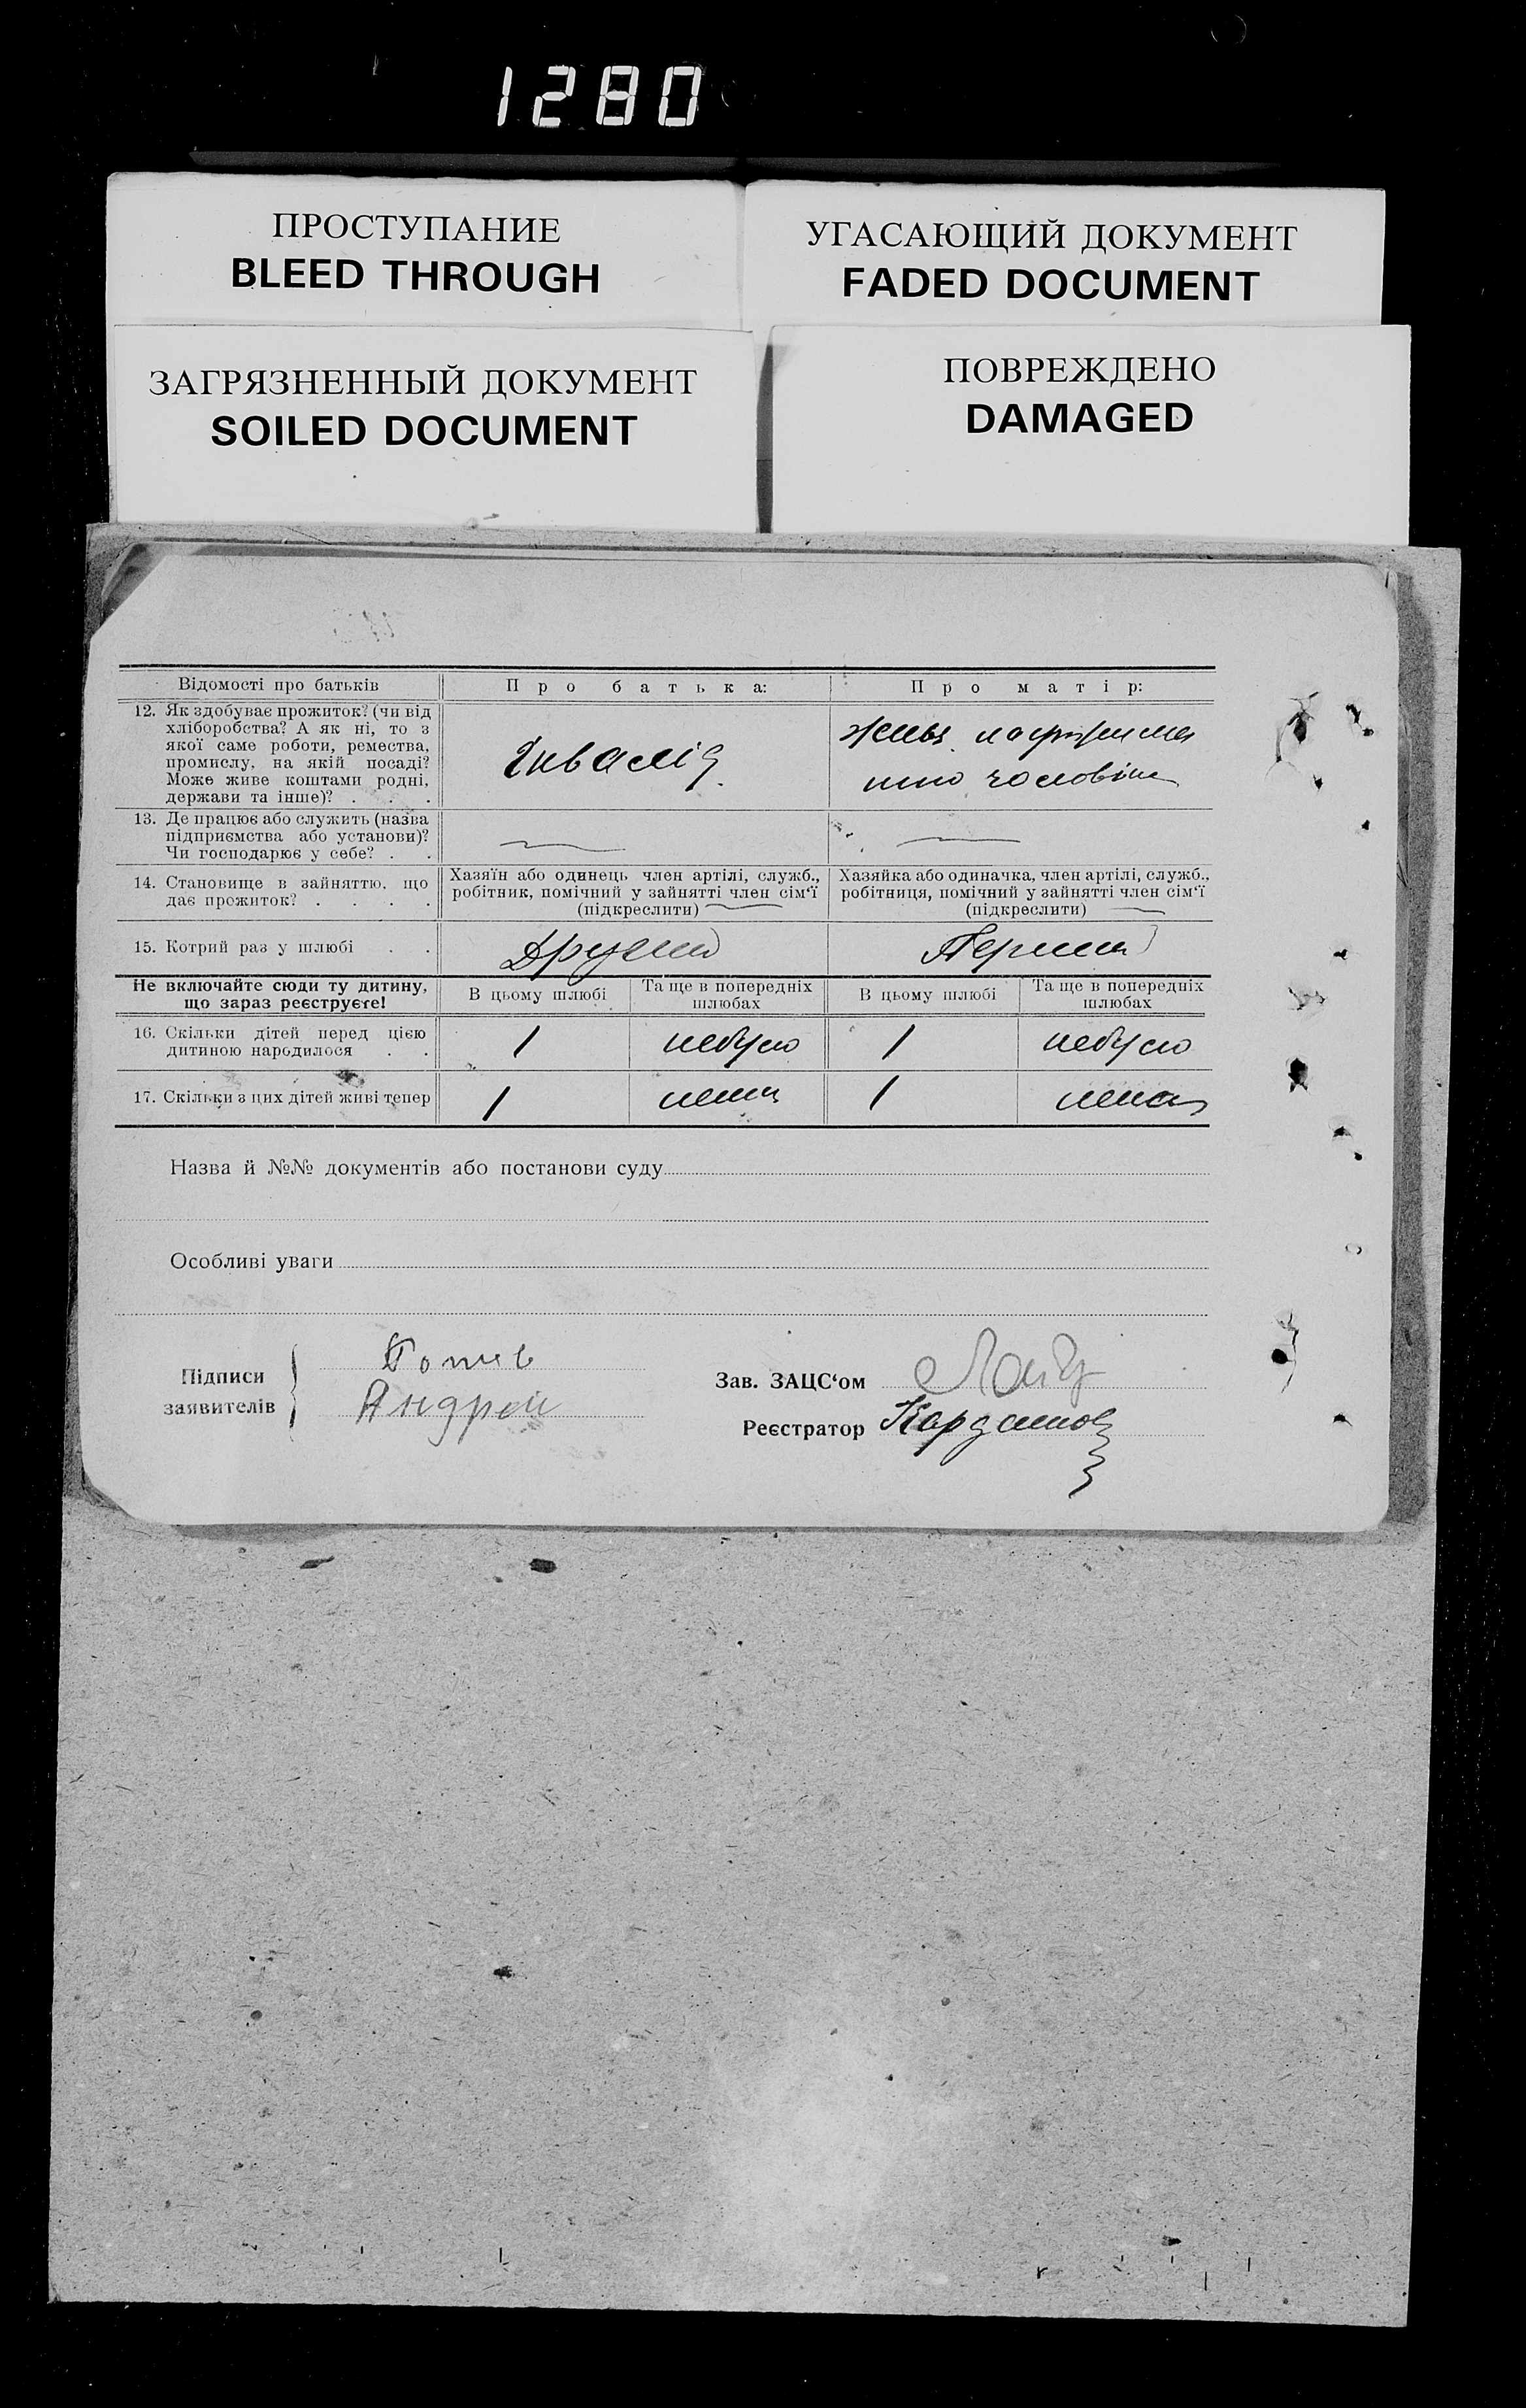 1280
ПРОСТУПАНИЕ
BLEED THROUGH
УГАСАЮЩИЙ ДОКУМЕНТ
FADED DOCUMENT
ЗАГРЯЗНЕННЫЙ ДОКУМЕНТ
SOILED DOCUMENT
ПОВРЕЖДЕНО
DAMAGED
Відомості про батьків
Про батька:
Про матір:
12. Як здобуває прожиток? (чи від
хліборобства? А як ні, то з
якої саме роботи, ремества,
промислу, на якій посаді?
Може живе коштами родні,
держави та інше)? . . .
Інвалід
живе
чоловіка
13. Де працює або служить (назва
підприємства або установи)?
Чи господарює у себе? . .
14. Становище в зайняттю, що
дає прожиток? . . . .
Хазяїн або одинець член артілі, служб.,
робітник, помічний у зайнятті член сім‘ї
(підкреслити)
Хазяйка або одиначка, член артілі, служб.,
робітниця, помічний у зайнятті член сім‘ї
(підкреслити)
15. Котрий раз у шлюбі . .
Другий
Перший
Не включайте сюди ту дитину,
що зараз реєструєте!
В цьому шлюбі
Та ще в попередніх
шлюбах
В цьому шлюбі
Та ще в попередніх
шлюбах
16. Скільки дітей перед цією
дитиною народилося . .
1
небуло
1
небуло
17. Скільки з цих дітей живі тепер
1
нема
1
нема
Назва й №№ документів або постанови суду
Особливі уваги
Підписи
заявителів
Андрей
Зав. ЗАЦС‘ом
Реєстратор